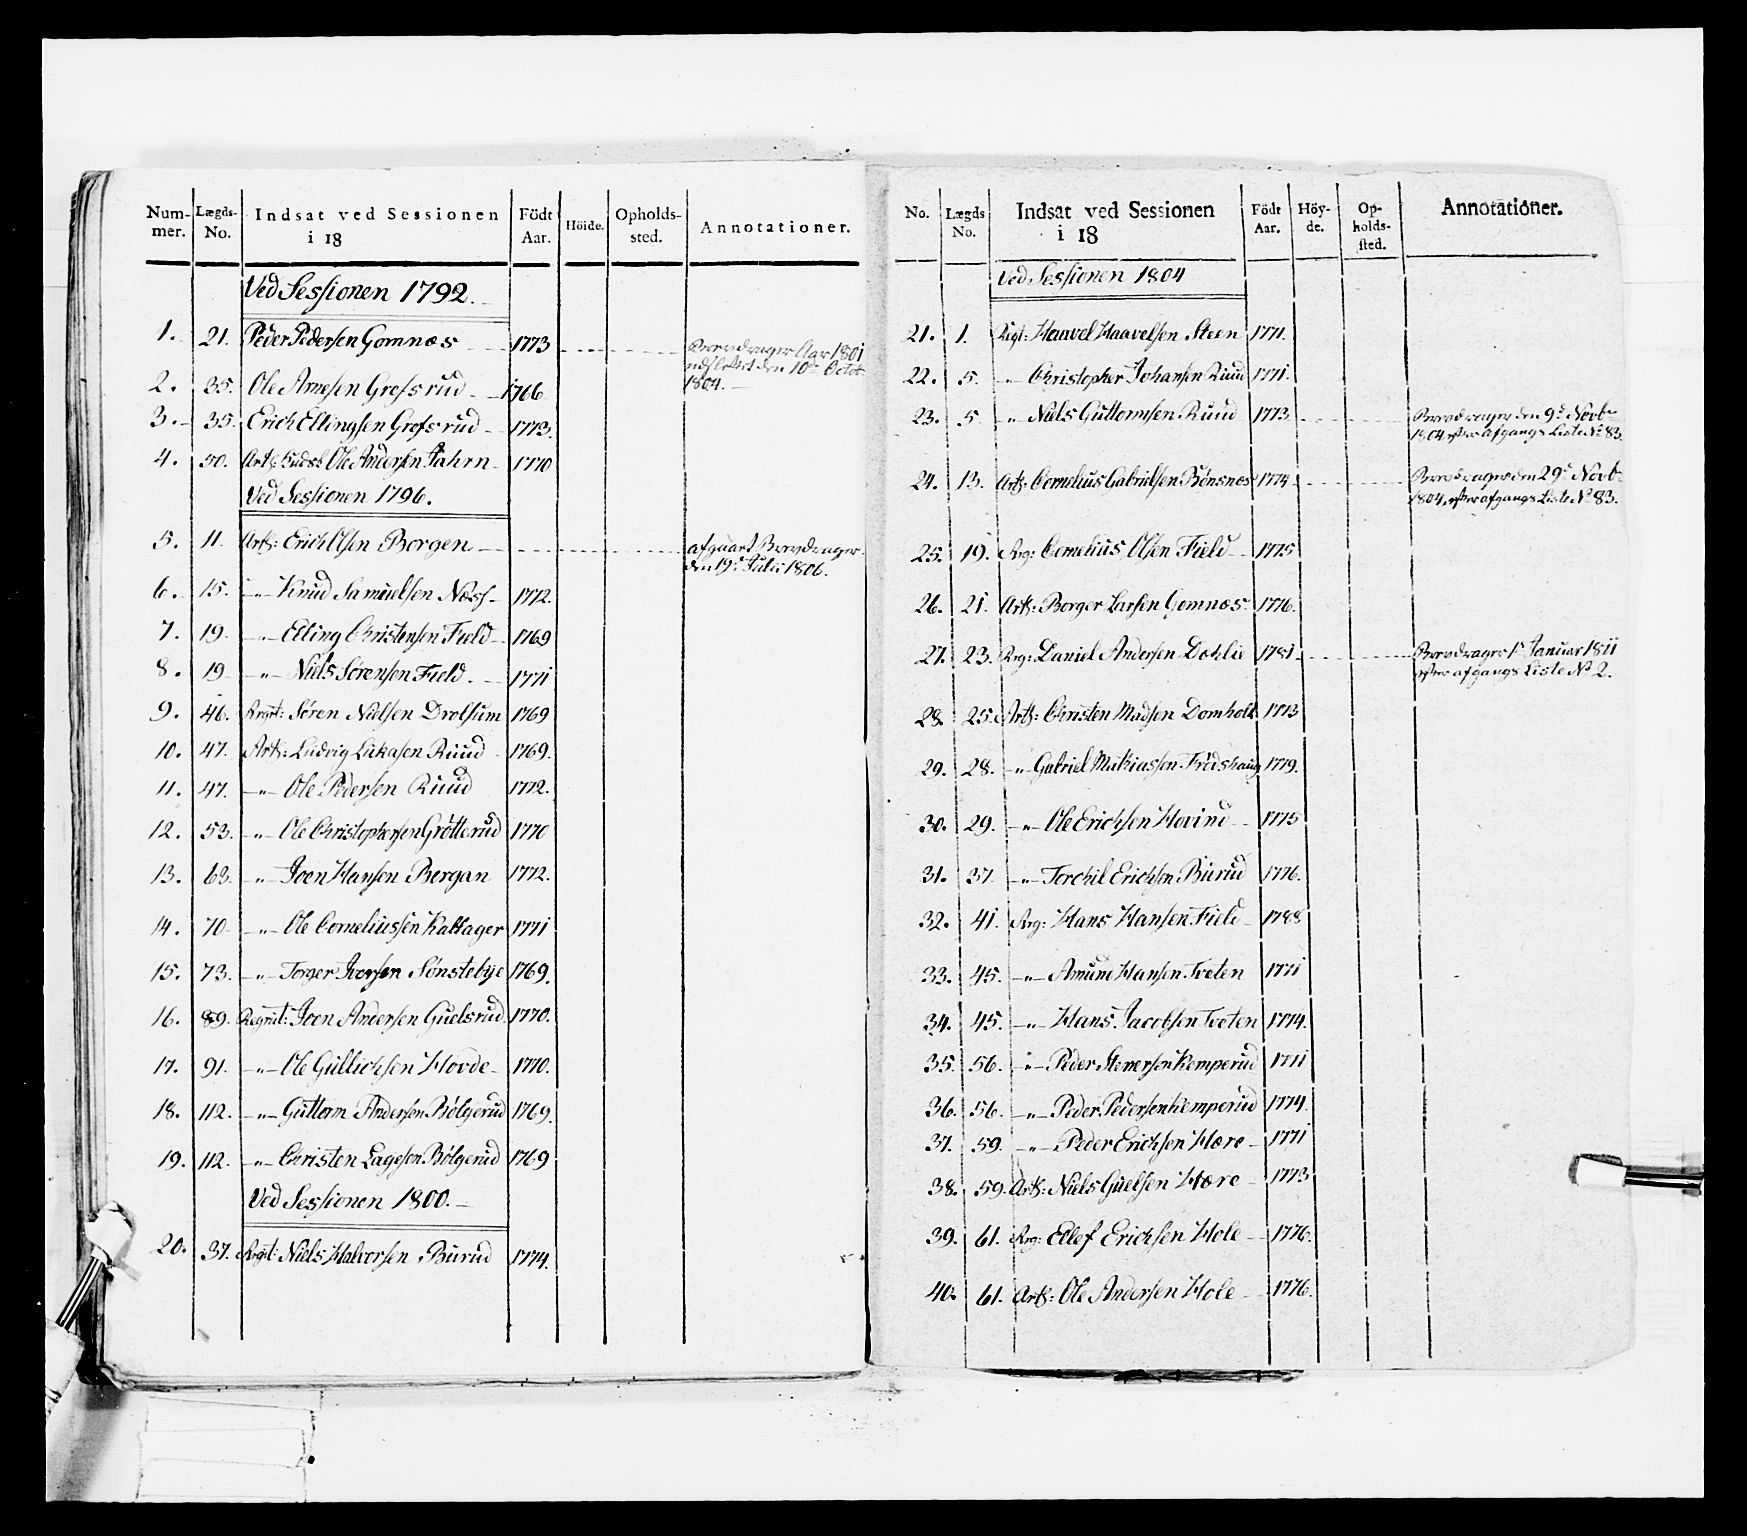 Num- Lægds- Indsat ved Sessionen Födt Höide. Opholds- Annotationer.
mer. No. i 18 Aar. sted.
Ved Sessionen 1792.
1. 21. Peder Pedersen Gomnæs 1773 Brevdrager Aar 1801
udslettet den 10de Octobr
1804.
2. 35. Ole Arnesen Grefsrud 1766
3. 35. Erich Ellingsen Grefsrud 1773.
4. 50. Ole Andersen Fahrn 1770
Ved Sessionen 1796.
5. 11. Artl: Erich Olsen Borgen afgaaet Brevdrager
den 19de Julii 1806.
6. 15. -"- Knud Samuelsen Næss 1772.
7. 19. -"- Elling Christensen Field 1769
8. 19 -"- Niels Sörensen Field. 1771
9. 46. Regt: Sören Nielsen Drolsum 1769
10. 47. Artl: Ludvig Lukasen Ruud 1769.
11. 47. -"- Ole Pedersen Ruud 1772.
12. 53. -"- Ole Christophersen Grötterud 1770
13. 63. -"- Joen Hansen Bergan 1772.
14. 70 -"- Ole Corneliussen Kattager 1771
15. 73. -"- Torger Iversen Sönstebye 1769.
16. 89. Regmt: Joen Andersen Guelsrud 1770.
17. 91. -"- Ole Gullichsen Hovde 1770.
18. 112. -"- Guttorm Andersen Bölgerud 1769.
19. 112. -"- Christen Lagesen Bölgerud 1769
Ved Sessionen 1800.
20. 37. Regt: Niels Halvorsen Burud 1774.
No. Lægds Indsat ved Sessionen Födt Höy- Op- Annotationer.
No. i 18 Aar. de. holds-
sted.
Ved Sessionen 1804
21. 1. Regt: Haavel Haavelsen Steen 1771.
22. 5. -"- Christopher Johansen Ruud 1771.
23. 5 -"- Niels Guttormsen Ruud 1773. Brevdrager den 9de Novbr
1804, efter afgangs Liste No 83.
24. 13. Artl: Cornelius Gabrielsen Bönsnæs 1774 Brevdrager den 29de Novbr
1804, efter afgangs Liste No 83.
25. 19. Reg: Cornelius Olsen Field 1775
26. 21. Artl: Borger Larsen Gomnæs 1776.
27. 23. Reg: Daniel Andersen Dohlie 1781 Brevdrager 1te Januar 1811
efter afgangs Liste No 2.
28. 25. Artl: Christen Madsen Domholt 1773
29. 28. -"- Gabriel Mathiassen Fredshaug 1779.
30. 29. -"- Ole Erichsen Hovind 1775
31. 37 -"- Torchil Erichsen Burud 1776.
32. 41. Reg: Hans Hansen Field 1788
33. 45. -"- Amund Hansen Tveten 1771
34. 45. -"- Hans Jacobsen Tveten 1774.
35. 56. -"- Peder Stenersen Kemperud 1771
36. 56. -"- Peder Pedersen Kemperud 1774.
37. 59. -"- Peder Erichsen Hære 1771
38. 59. Artl: Niels Guelsen Hære 1773
39. 61. Reg: Ellef Erichsen Hole 1776.
40. 61. Artl: Ole Andersen Hole 1776.